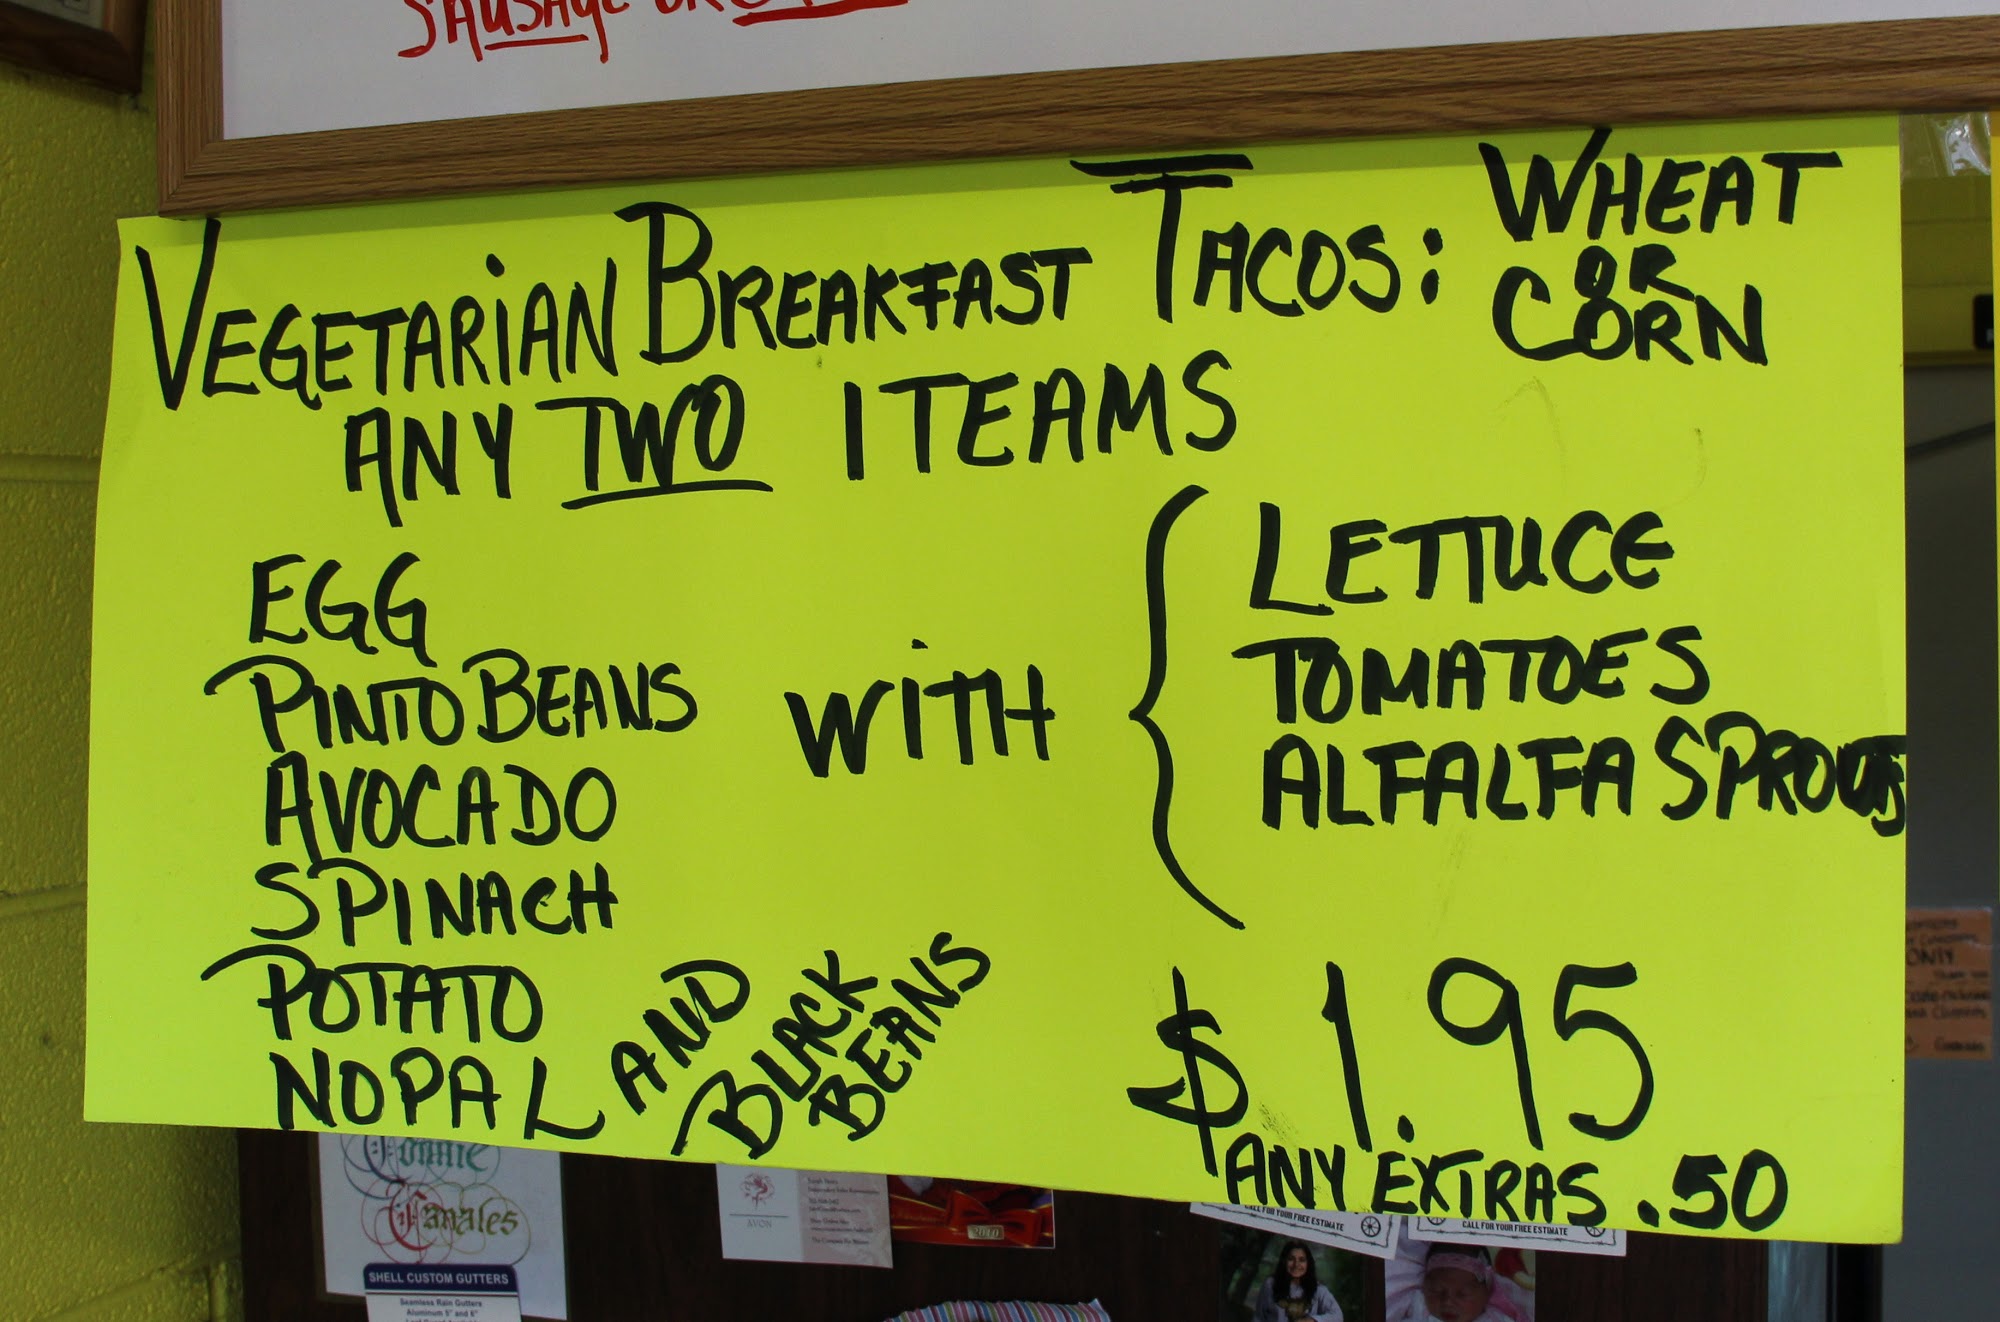 SAUSAGE OR
VEGETARIAN BREAKFAST TACOS: WHEAT
OR
CORN
ANY TWO ITEAMS
EGG
PINTO BEANS
AVOCADO
SPINACH
POTATO
NOPAL AND BLACK BEANS
WITH
LETTUCE
TOMATOES
ALFALFA SPROUTS
$1.95
ANY EXTRAS .50
Connie
Canales
SHELL CUSTOM GUTTERS
Seamless Rain Gutters
Aluminum 5" and 6"
AVON
CALL FOR YOUR FREE ESTIMATE
CALL FOR YOUR FREE ESTIMATE
ONLY